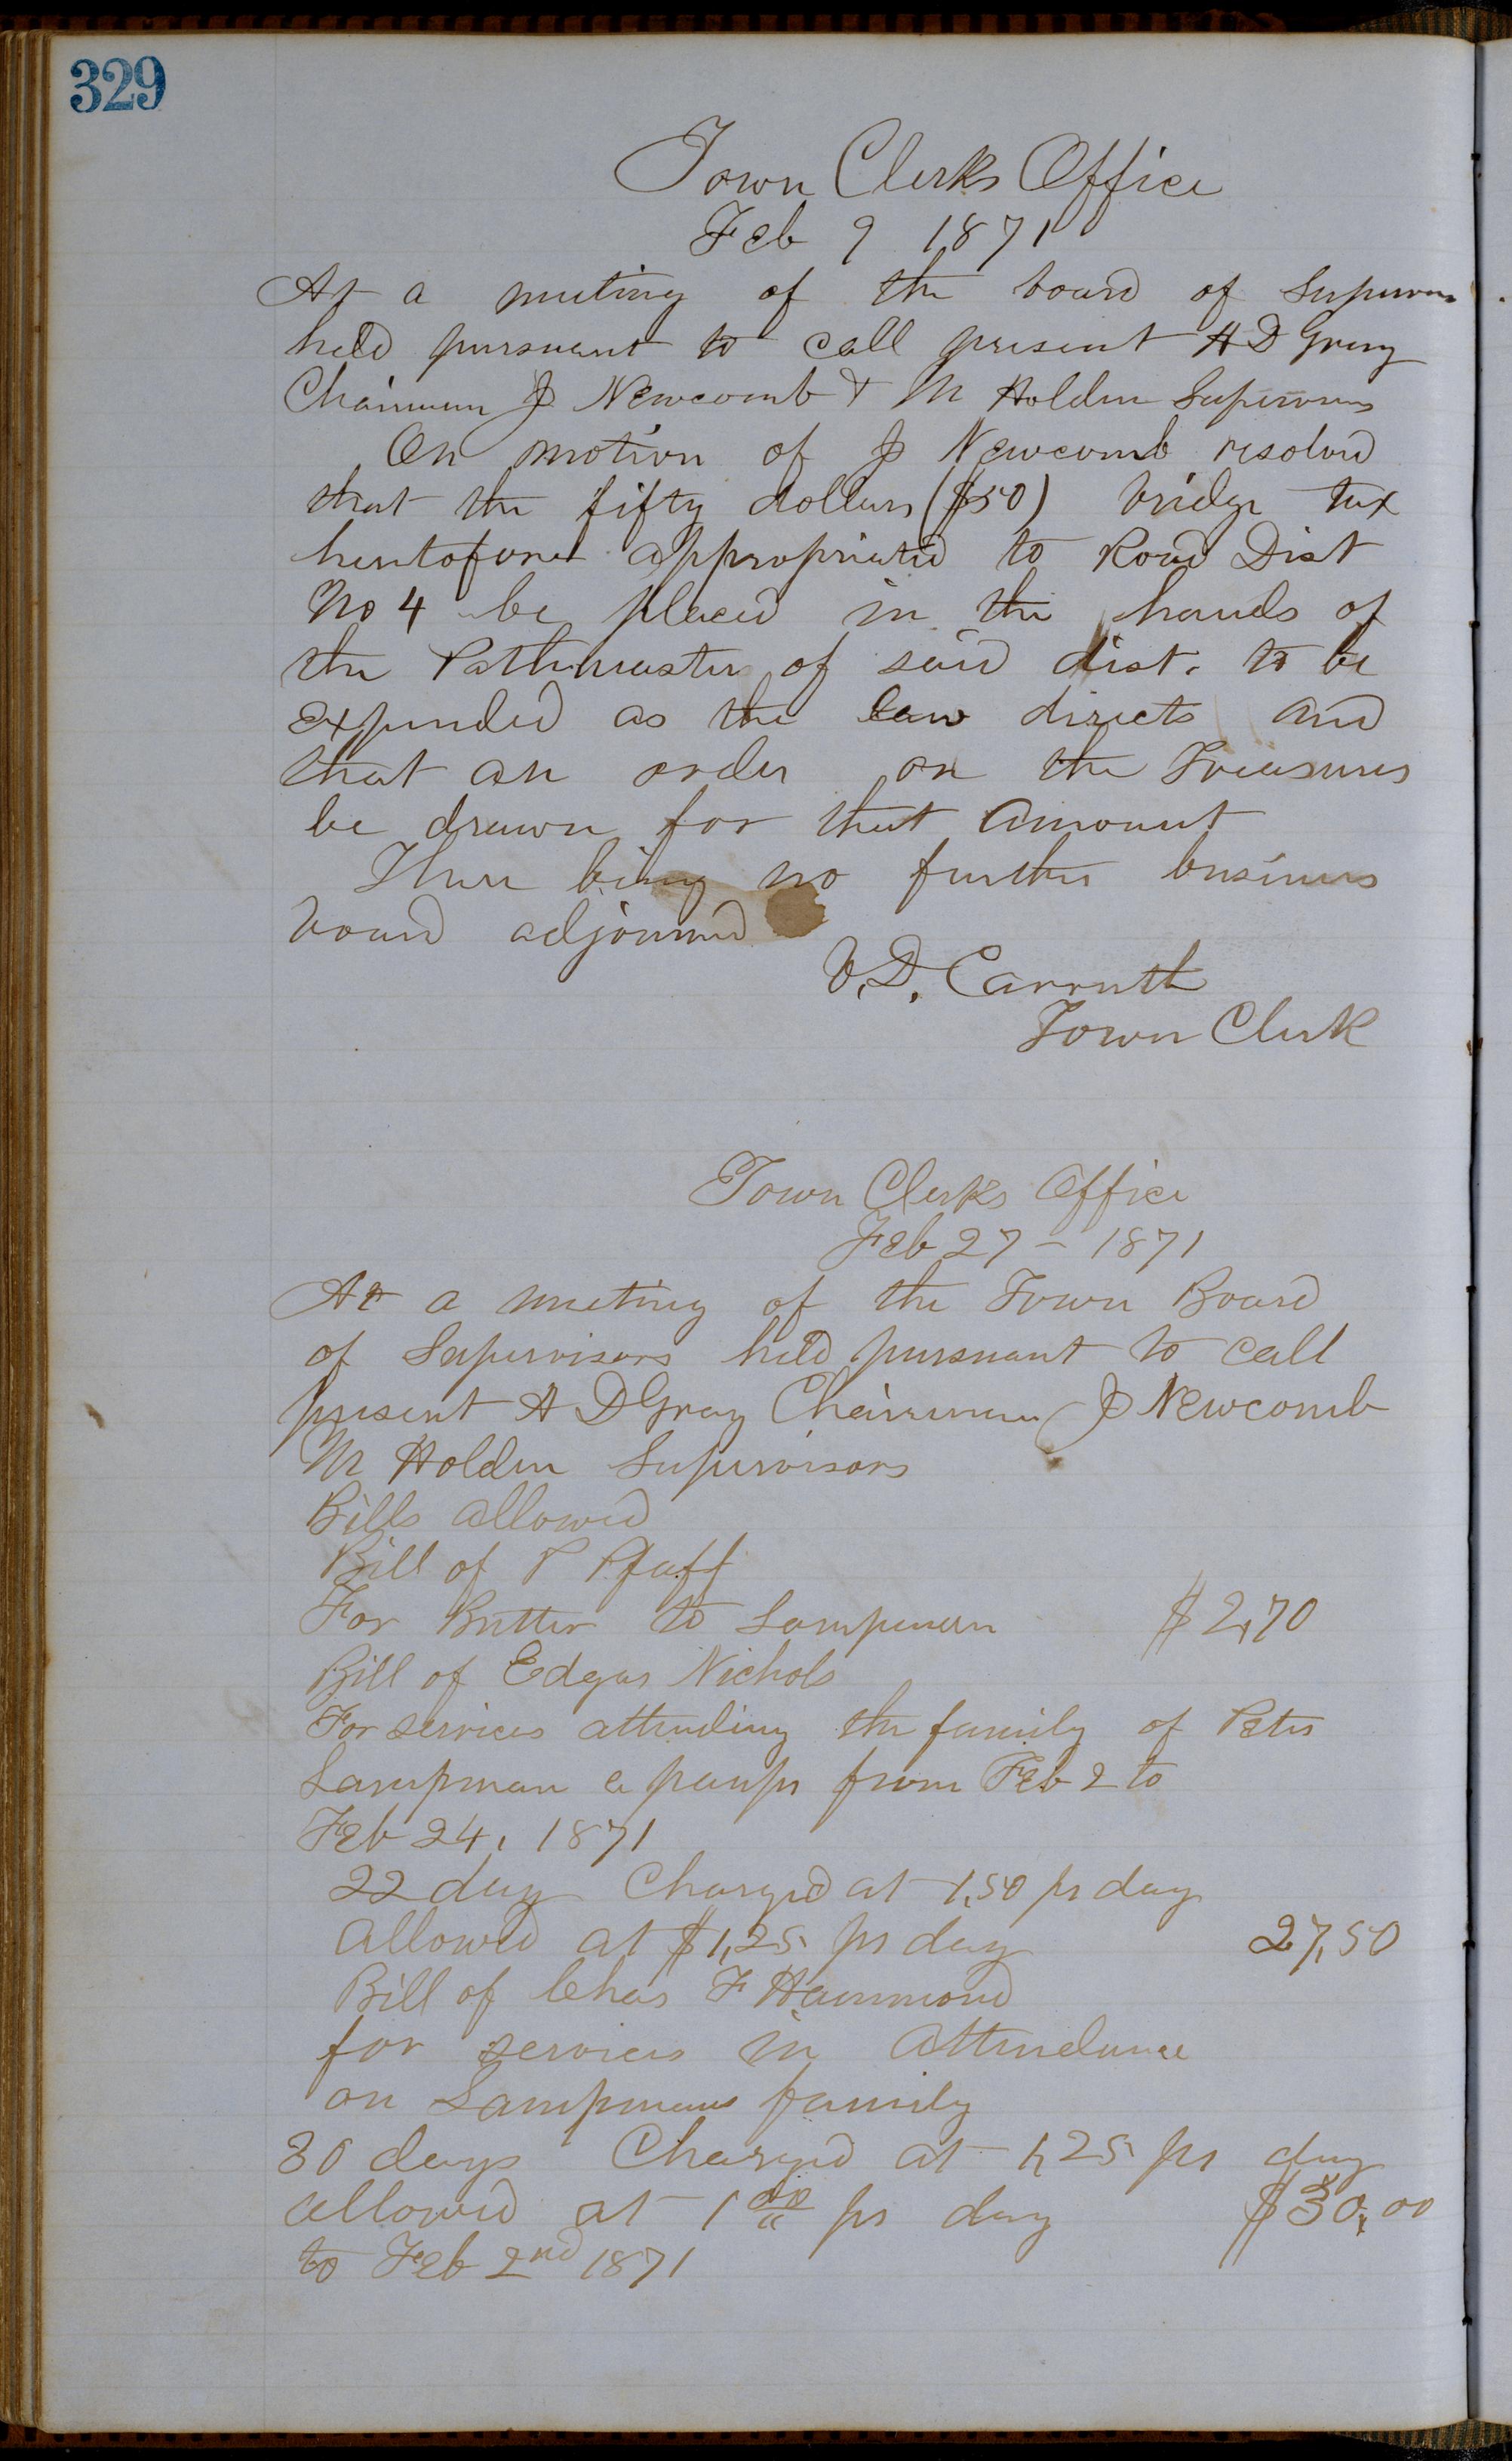 329
Town Clerks Office
Feb 9 1871
At a meeting of the board of Supervisors
held pursuant to call present A D Gray
Chairman J Newcomb & M Holden Supervisors
On motion of J Newcomb resolved
that the fifty dollars ($50) bridge tax
heretofore appropriated to Road Dist
No 4 be placed in the hands of
the Pathmaster of said dist. to be
expended as the law directs and
that an order on the Treasurer
be drawn for that amount
There being no further business
board adjourned
V. D. Carruth
Town Clerk
Town Clerks Office
Feb 27 - 1871
At a meeting of the Town Board
of Supervisors held pursuant to call
present A D Gray Chairman J Newcomb
M Holden Supervisors
Bills allowed
Bill of P Pfaff
For Butter to Lampman $2,70
Bill of Edgar Nichols
For services attending the family of Peter
Lampman a paupr from Feb 2 to
Feb 24, 1871
22 day Charged at 1,50 pr day
allowed at $1,25 pr day 27,50
Bill of Chas F Hammond
for services in attendance
on Lampmans family
30 days Charged at 1,25 pr day
allowed at 1 00 pr day $30,00
to Feb 2nd 1871